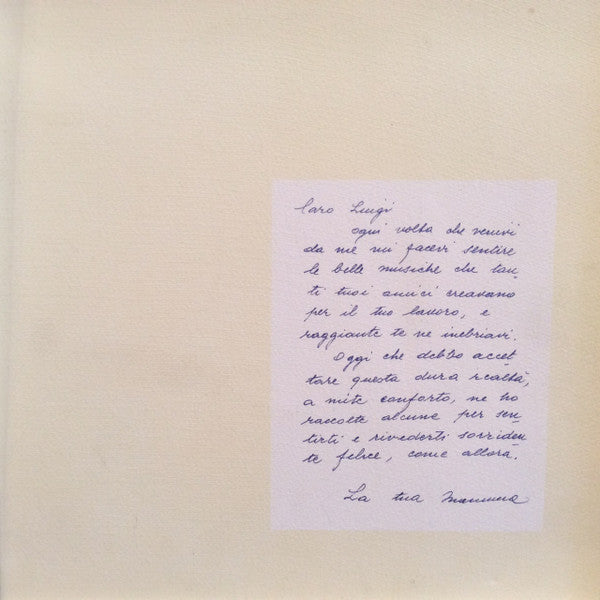 Caro Luigi
ogni volta che venivi
da me mi facevi sentire
le belle musiche che tan-
ti tuoi amici creavano
per il tuo lavoro, e
raggiante te ne inebriavi.
Oggi che debbo accet-
tare questa dura realtà,
a mite conforto, ne ho
raccolte alcune per sen-
tirti e rivederti sorriden-
te felice, come allora.
La tua Mamma